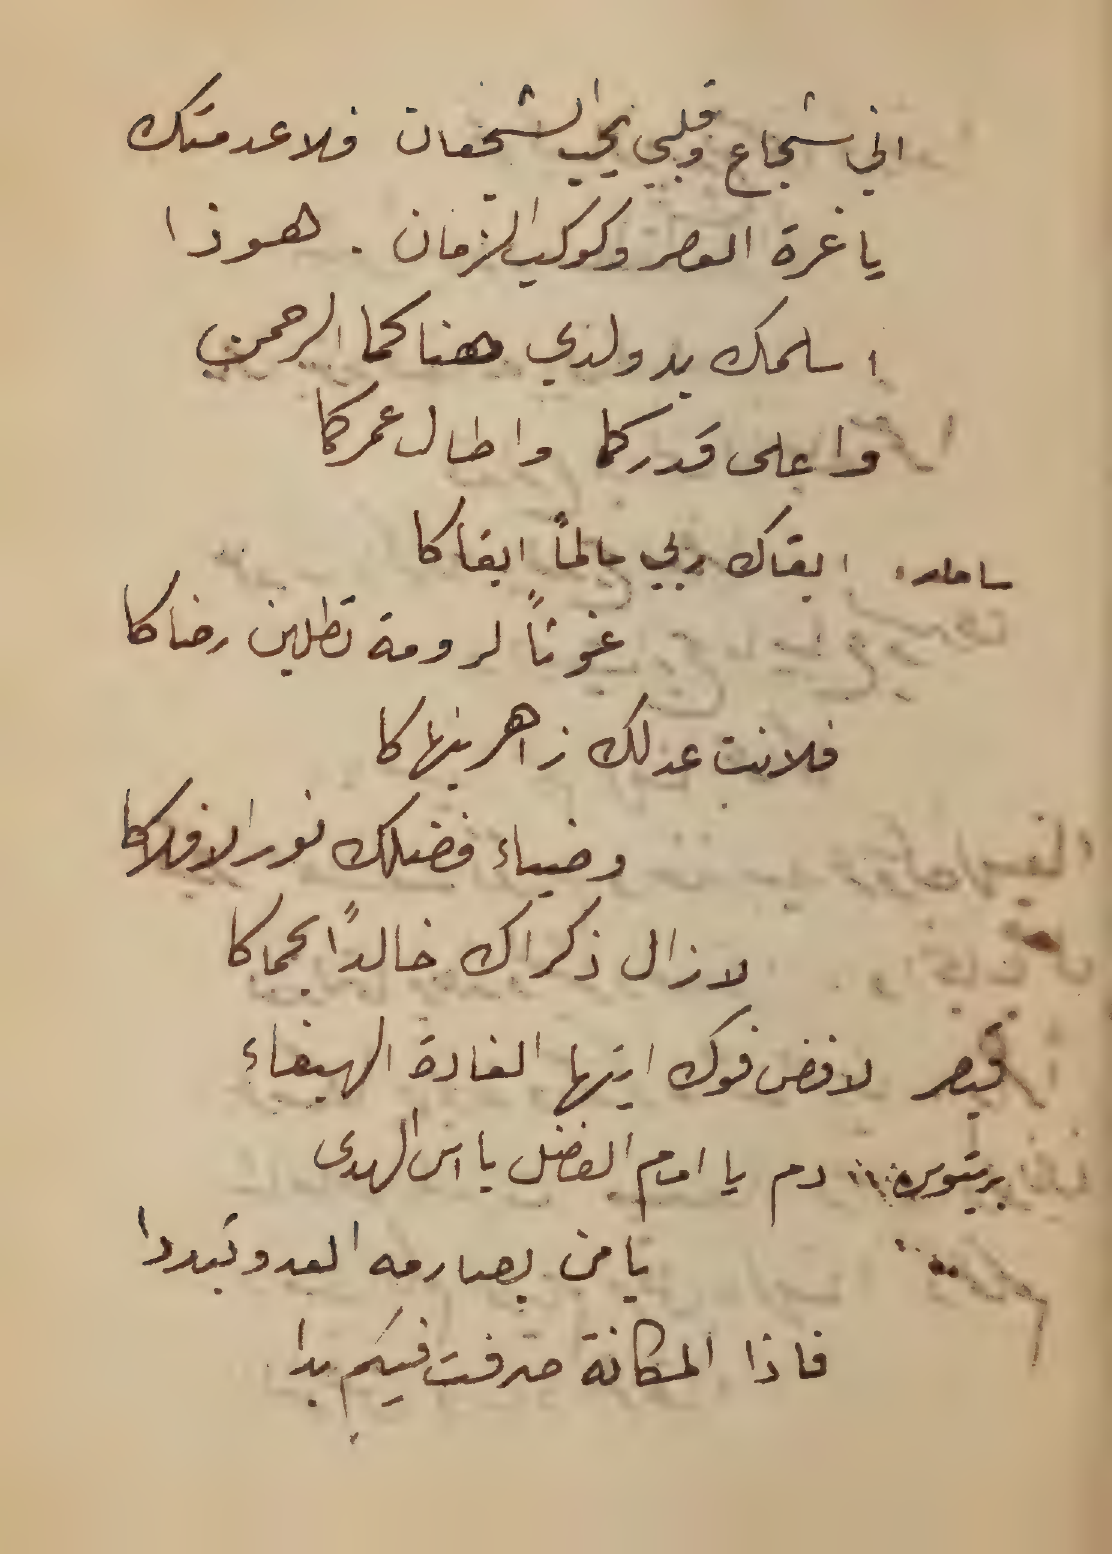 اني شجاع وقلبي يحب الشجعان فلا عدمتك
يا غرة العصر وكوكب الزمان . هوذا
اسلمك يد ولدي هناكما الرحمن
واعلى قدركما واطال عمركما
ابقاك ربي حاكماً ابقاكا
غوثاً لرومة تطلبن رضاكا
فلانت عدلك زاهر بنهاكا
وضياء فضلك نور الافلاكا
لا زال ذكراك خالداً بحماكا
قيصر لا فض فوك ايتها الغادة الهيفاء
بريتوس دم يا امام الفضل يا اس الهدى
يا من بصارمه العدو تبددا
فاذا المكانة صرفت فيكم بدا